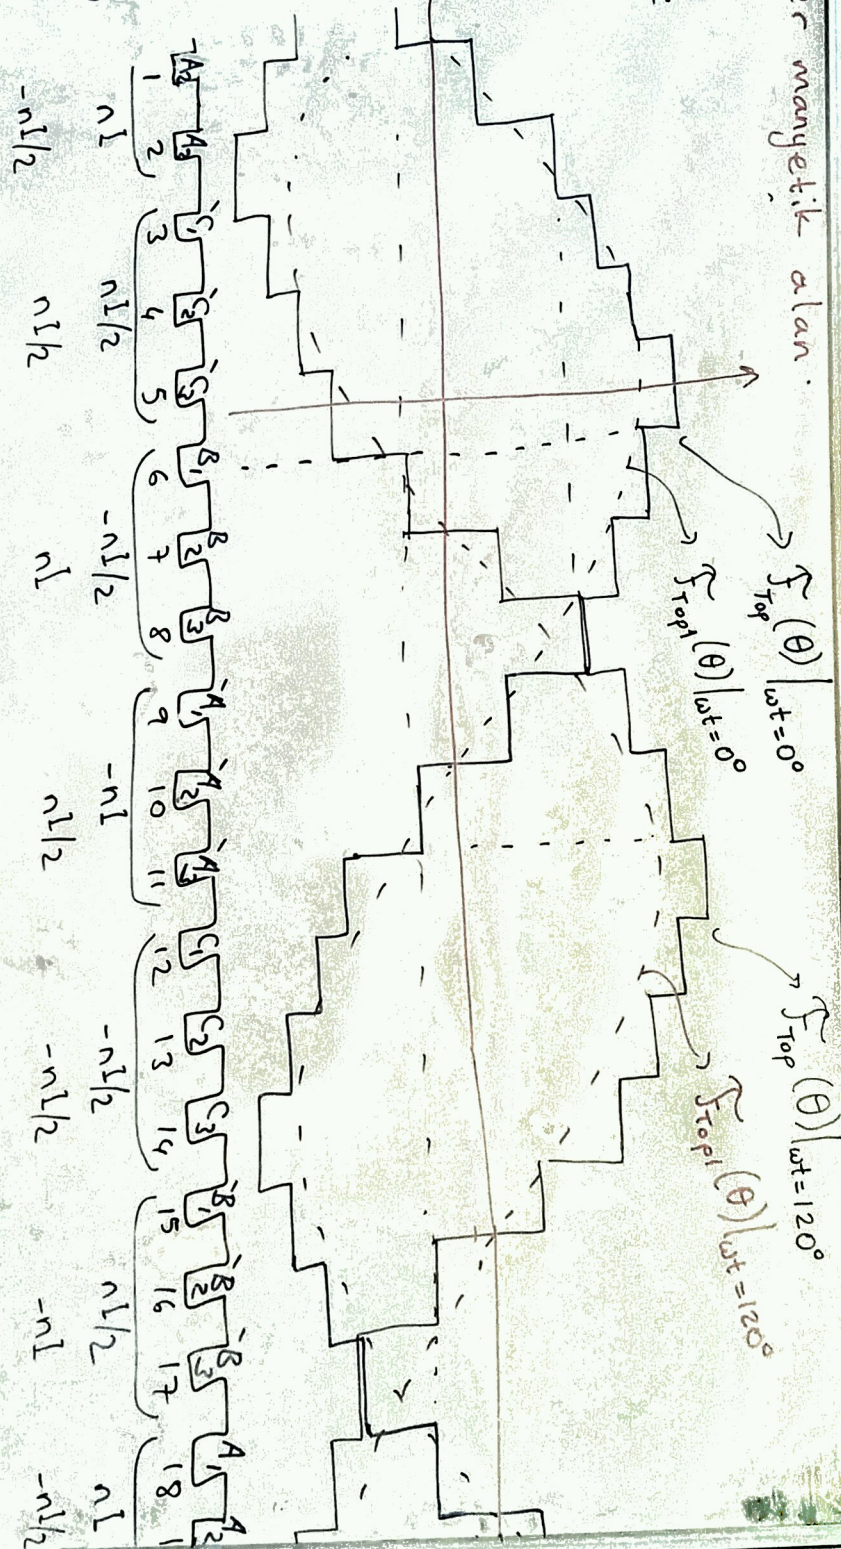 er manyetik alan.
𝓕Top(θ)|ωt=0°
𝓕Top(θ)|ωt=120°
𝓕Top1(θ)|ωt=0°
𝓕Top1(θ)|ωt=120°
A2 A3 C1' C2' C3' B1 B2 B3 A1' A2' A3' C1 C2 C3 B1' B2' B3' A1 A2
1 2 3 4 5 6 7 8 9 10 11 12 13 14 15 16 17 18 1
nI nI/2 -nI/2 -nI -nI/2 nI/2 nI
-nI/2 nI/2 nI nI/2 -nI/2 -nI -nI/2